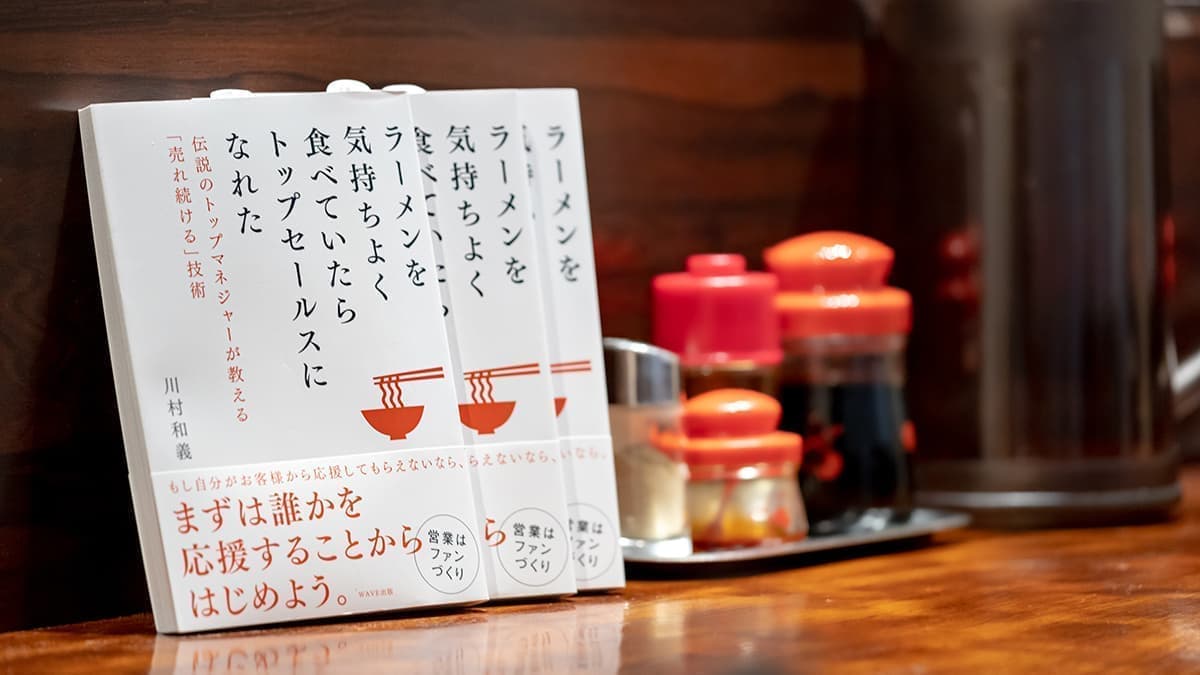 ラーメンを
気持ちよく
食べていたら
トップセールスに
なれた
伝説のトップマネジャーが教える
「売れ続ける」技術
川村和義
もし自分がお客様から応援してもらえないなら、
まずは誰かを
応援することから
はじめよう。
営業は
ファン
づくり
WAVE出版
ラーメンを
気持ちよく
食べていたら
らえないなら、
ら
営業は
ファン
づくり
ラーメンを
いなら、
業は
ァン
くり